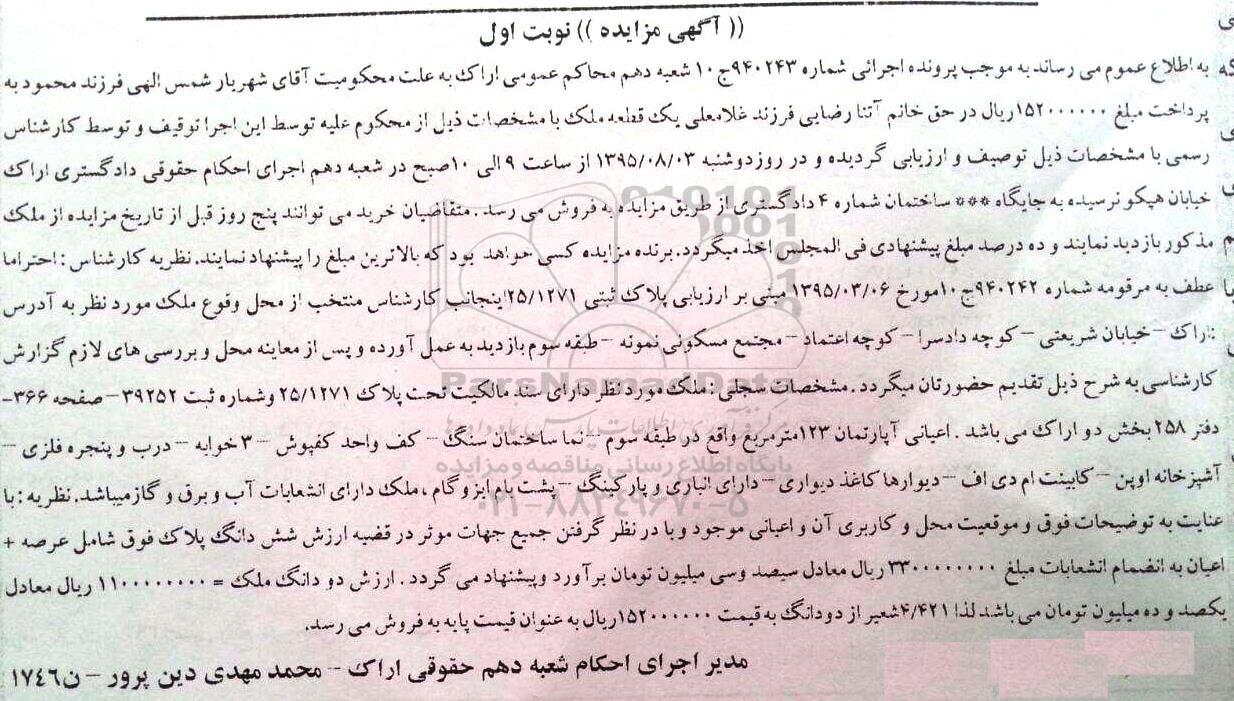 (( آگهی مزایده )) نوبت اول
به اطلاع عموم می رساند به موجب پرونده اجرائی شماره ۹۴۰۲۴۳ج۱۰ شعبه دهم محاکم عمومی اراک به علت محکومیت آقای شهریار شمس الهی فرزند محمود به
پرداخت مبلغ ۱۵۲۰۰۰۰۰۰ریال در حق خانم آتنا رضایی فرزند غلامعلی یک قطعه ملک با مشخصات ذیل از محکوم علیه توسط این اجرا توقیف و توسط کارشناس
رسمی با مشخصات ذیل توصیف و ارزیابی گردیده و در روز دوشنبه ۱۳۹۵/۰۸/۰۳ از ساعت ۹ الی ۱۰صبح در شعبه دهم اجرای احکام حقوقی دادگستری اراک
خیابان هپکو نرسیده به جایگاه *** ساختمان شماره ۴ دادگستری از طریق مزایده به فروش می رسد . متقاضیان خرید می توانند پنج روز قبل از تاریخ مزایده از ملک
مذکور بازدید نمایند و ده درصد مبلغ پیشنهادی فی المجلس اخذ میگردد. برنده مزایده کسی خواهد بود که بالاترین مبلغ را پیشنهاد نمایند. نظریه کارشناس : احتراما
عطف به مرقومه شماره ۹۴۰۲۴۲ج۱۰مورخ ۱۳۹۵/۰۳/۰۶ مبنی بر ارزیابی پلاک ثبتی ۲۵/۱۲۷۱اینجانب کارشناس منتخب از محل وقوع ملک مورد نظر به آدرس
:اراک – خیابان شریعتی – کوچه دادسرا – کوچه اعتماد – مجتمع مسکونی نمونه – طبقه سوم بازدید به عمل آورده و پس از معاینه محل و بررسی های لازم گزارش
کارشناسی به شرح ذیل تقدیم حضورتان میگردد . مشخصات سجلی : ملک مورد نظر دارای سند مالکیت تحت پلاک ۲۵/۱۲۷۱ وشماره ثبت ۳۹۲۵۲ – صفحه ۳۶۶-
دفتر ۲۵۸ بخش دو اراک می باشد . اعیانی آپارتمان ۱۲۳مترمربع واقع در طبقه سوم – نما ساختمان سنگ – کف واحد کفپوش – ۳ خوابه – درب و پنجره فلزی –
آشپزخانه اوپن – کابینت ام دی اف – دیوارها کاغذ دیواری – دارای انباری و پارکینگ – پشت بام ایزوگام ، ملک دارای انشعابات آب و برق و گاز میباشد. نظریه : با
عنایت به توضیحات فوق و موقعیت محل و کاربری آن و اعیانی موجود و با در نظر گرفتن جمیع جهات موثر در قضیه ارزش شش دانگ پلاک فوق شامل عرصه +
اعیان به انضمام انشعابات مبلغ ۳۳۰۰۰۰۰۰۰۰ ریال معادل سیصد وسی میلیون تومان برآورد وپیشنهاد می گردد . ارزش دو دانگ ملک = ۱۱۰۰۰۰۰۰۰۰ ریال معادل
یکصد و ده میلیون تومان می باشد لذا ۴/۴۲۱شعیر از دودانگ به قیمت ۱۵۲۰۰۰۰۰۰ریال به عنوان قیمت پایه به فروش می رسد.
مدیر اجرای احکام شعبه دهم حقوقی اراک – محمد مهدی دین پرور – ن۱۷۴۶
ParsNamadData
پایگاه اطلاع رسانی مناقصه و مزایده
۰۲۱-۸۸۳۴۹۶۷۰-۵